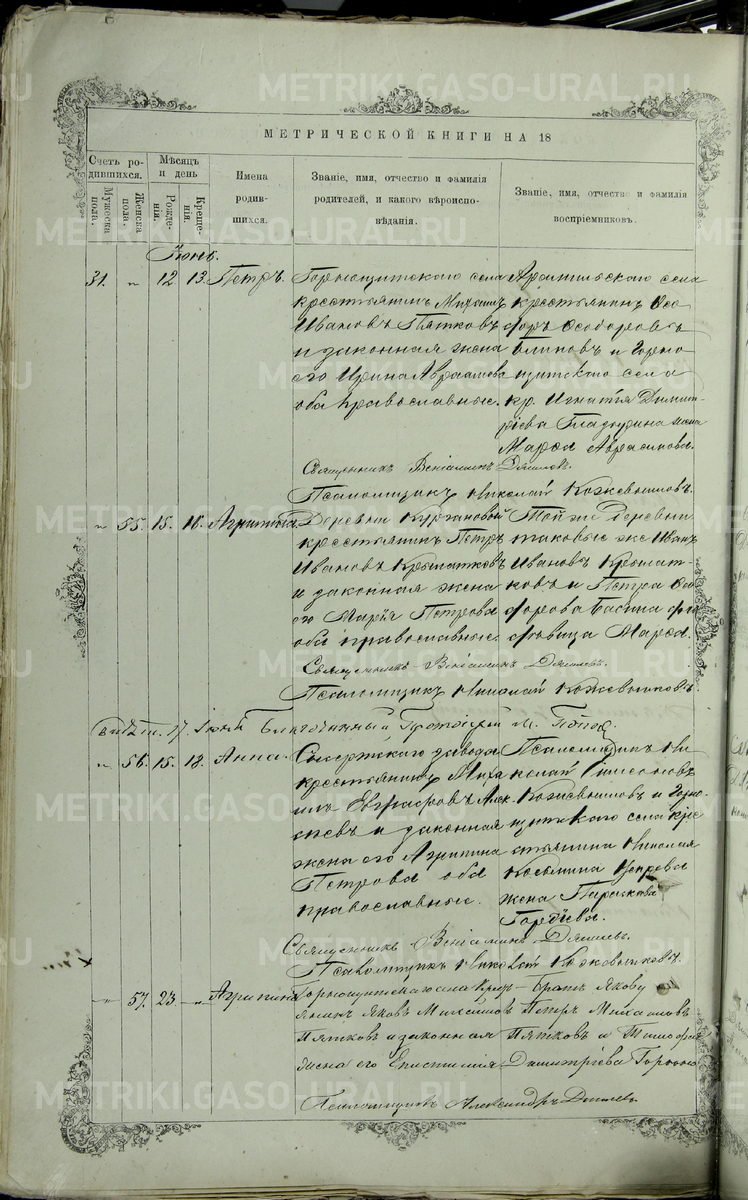 МЕТРИЧЕСКОЙ КНИГИ НА 18
Счетъ родившихся.
Мужеска пола.
Женска пола.
Мѣсяцъ и день
Рожденія.
Крещенія.
Имена родившихся.
Званіе, имя, отчество и фамилія родителей, и какого вѣроисповѣданія.
Званіе, имя, отчество и фамилія воспріемниковъ.
Іюнь.
31. " 12 13. Петръ.
Горнощитского села
крестьянинъ Михаилъ
Ивановъ Пятковъ
и законная жена
его Ирина Авраамова
оба православные.
Арамильского села
крестьянинъ Ѳео
доръ Ѳеодоровъ
Блиновъ и Горно
щитского села
кр. Игнатія Димит
ріева жена
Марѳа
Священникъ Веніаминъ
Псаломщикъ Николай Кожевниковъ.
" 55. 15. 16. Агрипина.
Деревни Кургановой
крестьянинъ Петръ
Ивановъ
и законная жена
его Марія Петрова
оба православные.
Той же деревни
таковые же Иванъ
Ивановъ
и Петра Ѳео
дорова
Марѳа.
Священникъ Веніаминъ
Псаломщикъ Николай Кожевниковъ.
17. Іюня Благочинный Протоіерей М. Поповъ
" 56. 15. 18. Анна.
Сысертского завода
крестьянинъ Миха
илъ Евграфовъ Алек
сѣевъ и законная
жена его Агрипина
Петрова оба
православные.
Псаломщикъ Ни
колай Симеоновъ
Кожевниковъ и Горно
щитского села кре
стьянина Николая
Косьмина
жена Параскева
Гордіева.
Священникъ Веніаминъ
Псаломщикъ Николай Кожевниковъ.
" 57. 23 " Агрипина
Горнощитскаго села крес
янинъ Яковъ Михайловъ
Пятковъ и законная
жена его Епистимія
Братъ Якову
Петръ Михайловъ
Пятковъ и
Димитріева
Псаломщикъ Александръ
METRIKI.GASO-URAL.RU